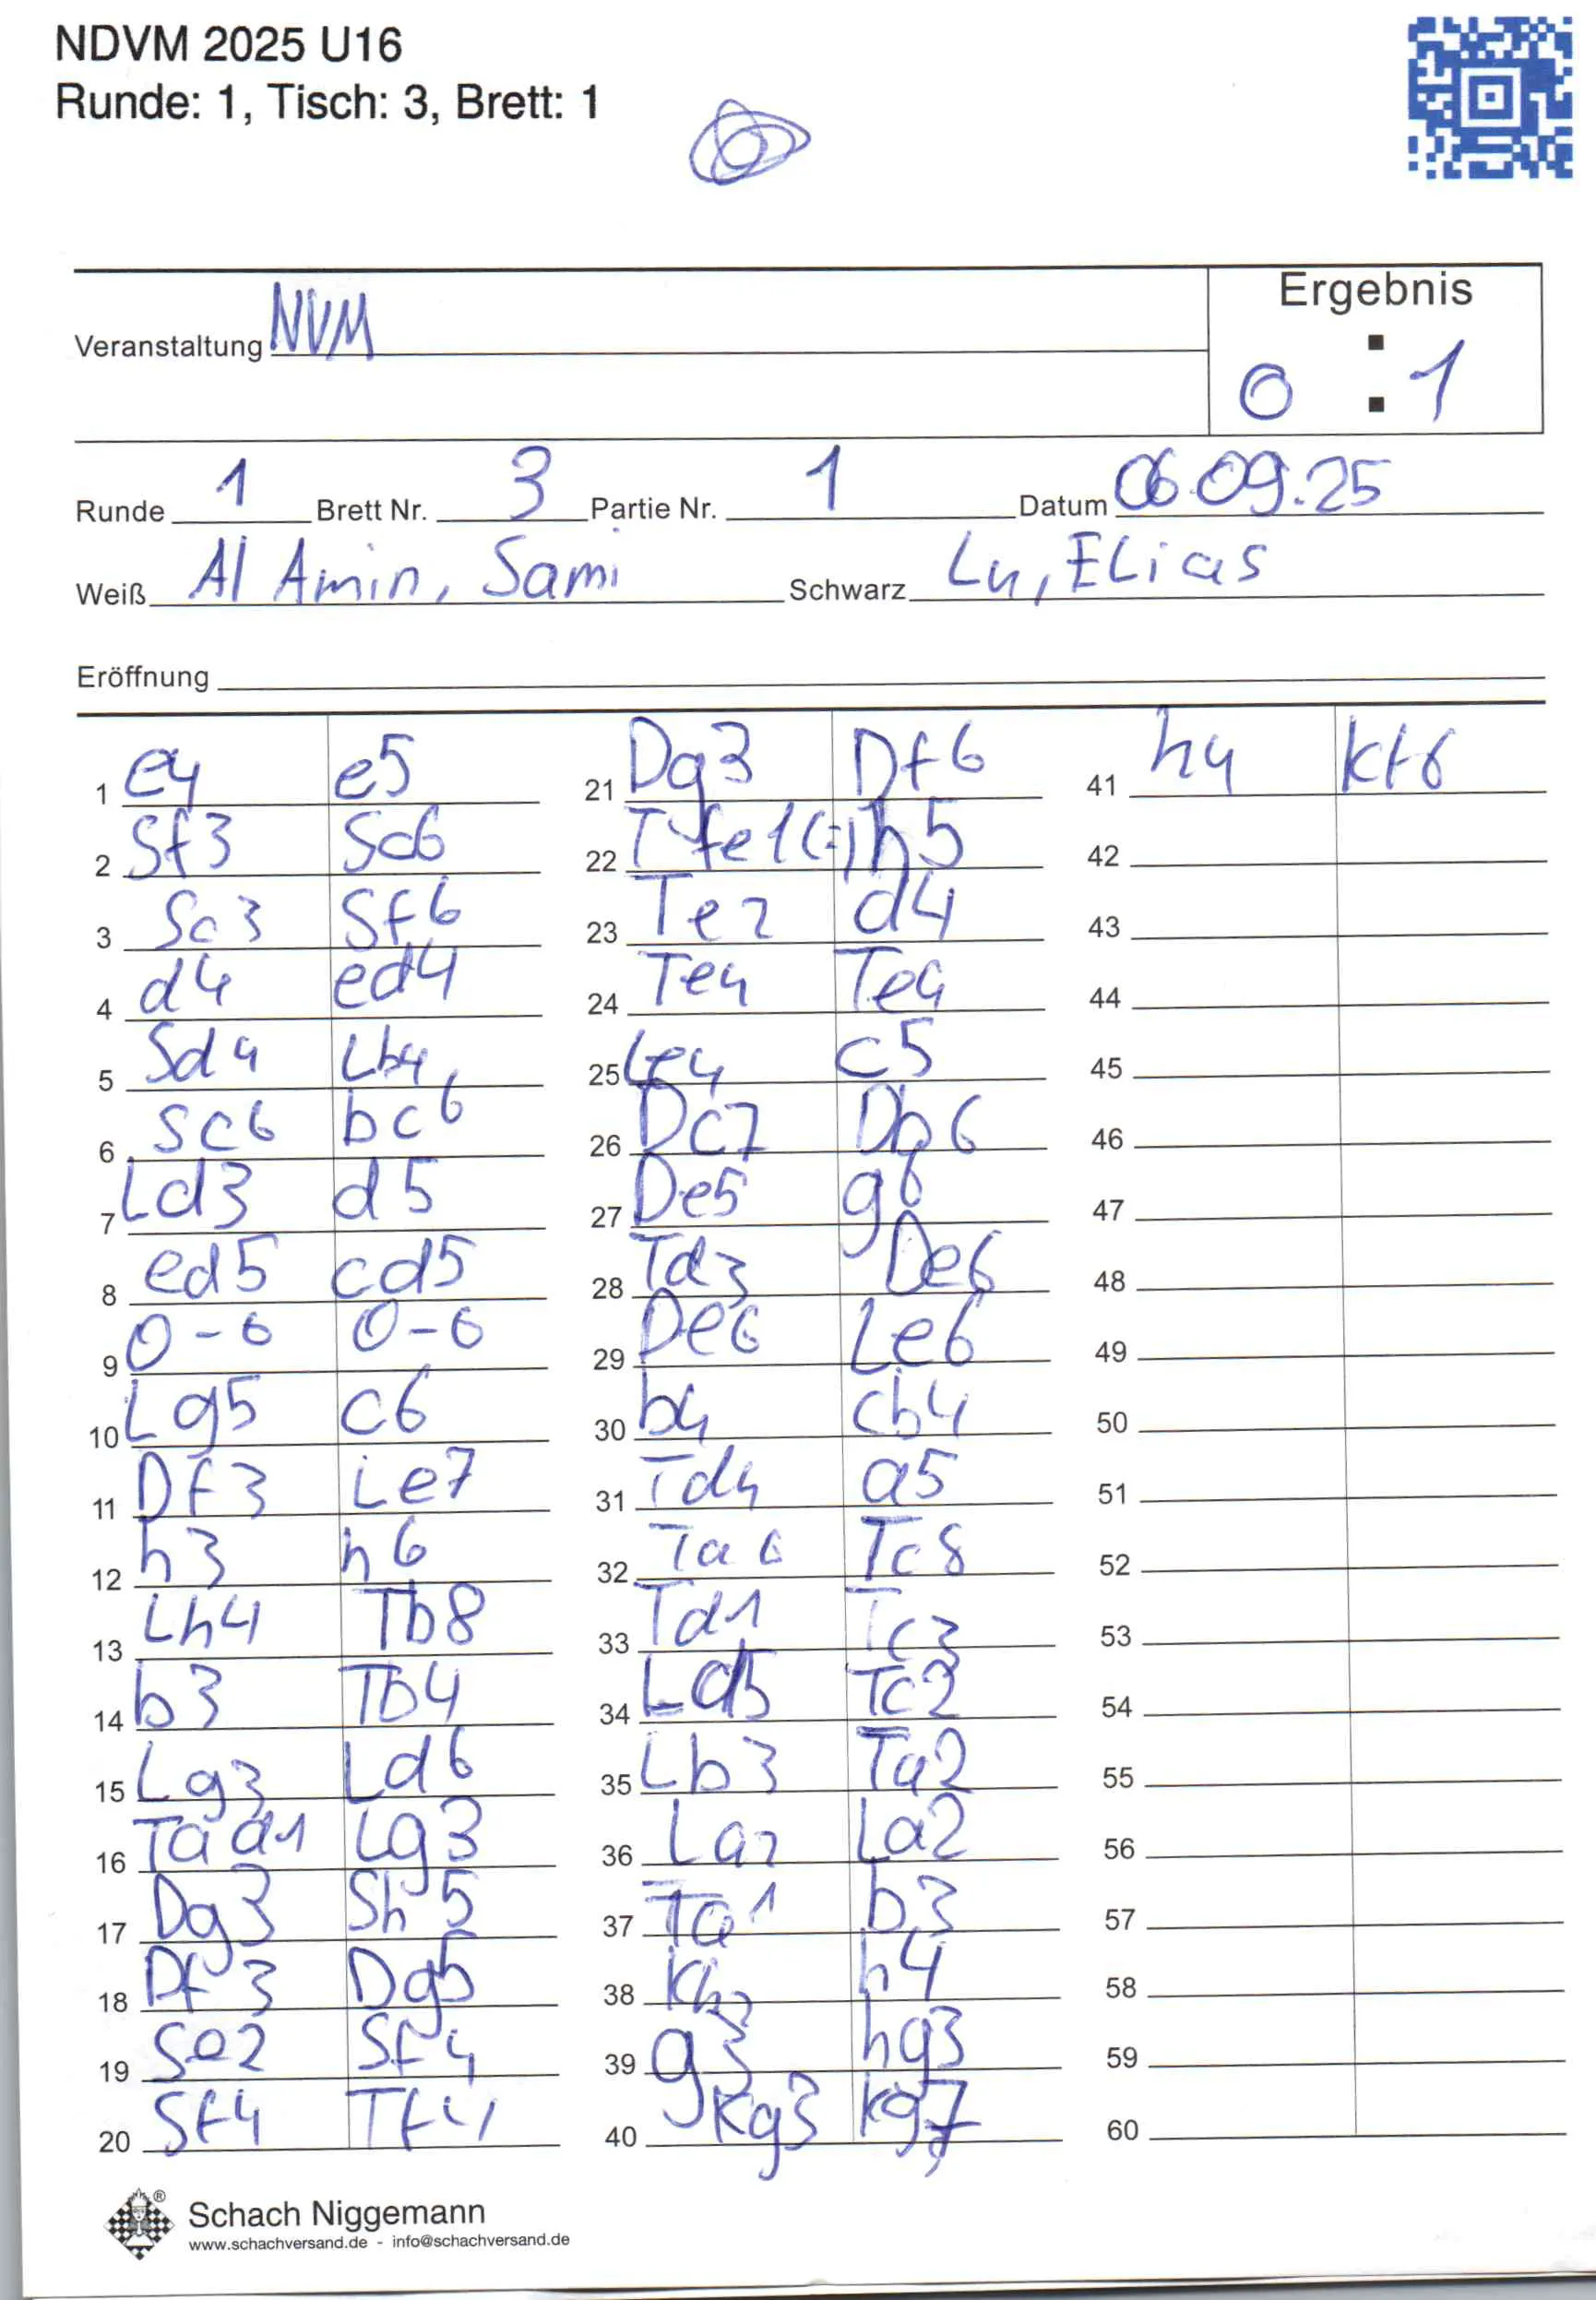 NDVM 2025 U16
Runde: 1, Tisch: 3, Brett: 1
Ergebnis
Veranstaltung NVM
0 : 1
Runde 1 Brett Nr. 3 Partie Nr. 1 Datum 06.09.25
Weiß Al Amin, Sami Schwarz Lu, Elias
Eröffnung
1 e4 e5
2 Sf3 Sc6
3 Sc3 Sf6
4 d4 ed4
5 Sd4 Lb4
6 Sc6 bc6
7 Ld3 d5
8 ed5 cd5
9 0-0 0-0
10 Lg5 c6
11 Df3 Le7
12 h3 h6
13 Lh4 Tb8
14 b3 Tb4
15 Lg3 Ld6
16 Tad1 Lg3
17 Dg3 Sh5
18 Df3 Dg5
19 Se2 Sf4
20 Sf4 Tf4
21 Dg3 Df6
22 Tfe1(=) h5
23 Te2 d4
24 Te4 Te4
25 Le4 c5
26 Dc7 Db6
27 De5 g6
28 Td3 De6
29 De6 Le6
30 b4 cb4
31 Td4 a5
32 Ta6 Tc8
33 Td1 Tc3
34 Ld5 Tc2
35 Lb3 Ta2
36 La2 La2
37 Ta1 b3
38 Kh2 h4
39 g3 hg3
40 Kg3 Kg7
41 h4 Kf6
42
43
44
45
46
47
48
49
50
51
52
53
54
55
56
57
58
59
60
Schach Niggemann
www.schachversand.de - info@schachversand.de